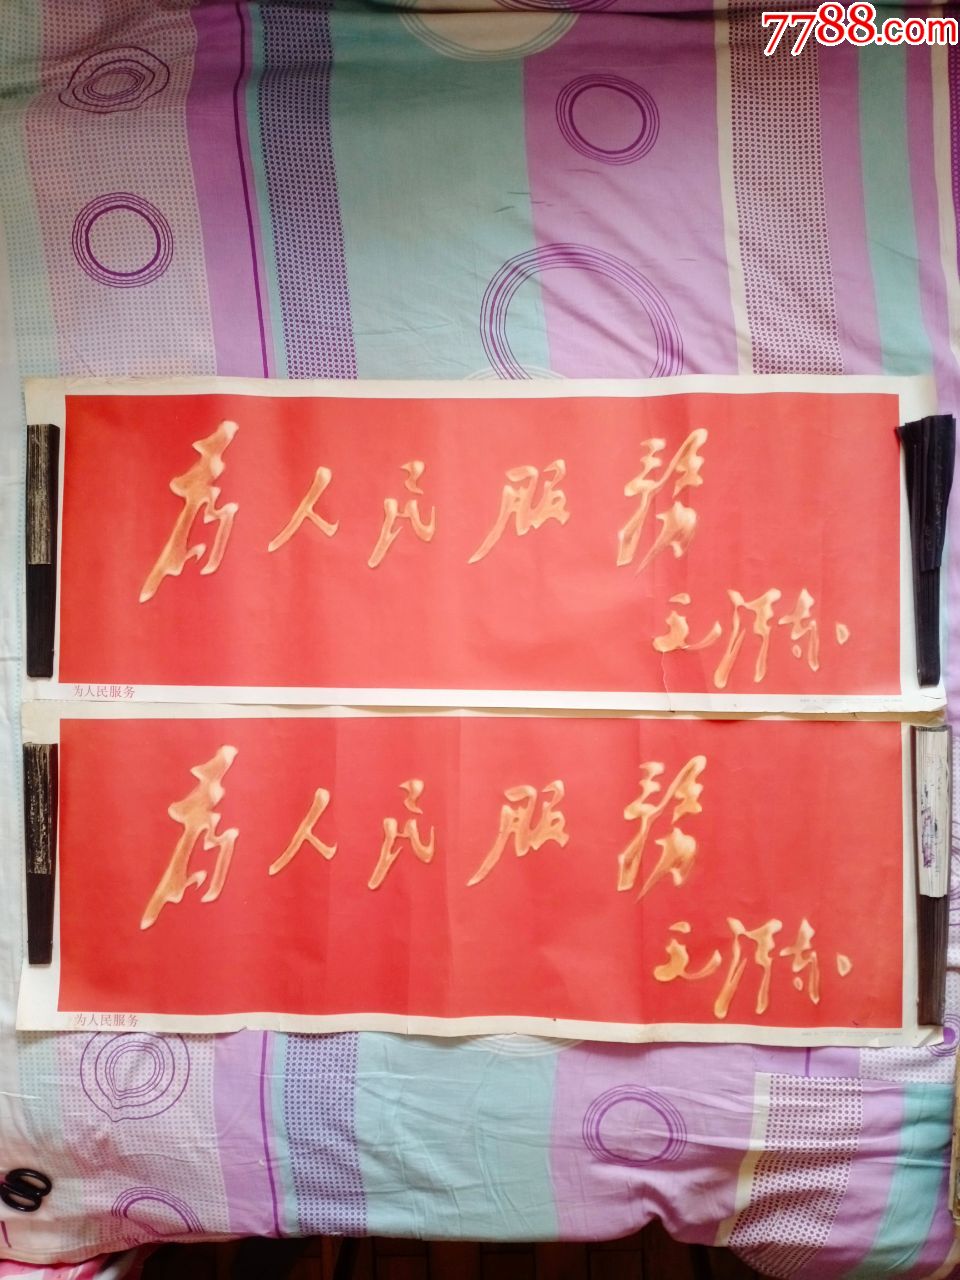 7788.com
為人民服務
毛澤东
为人民服务
為人民服務
毛澤东
为人民服务